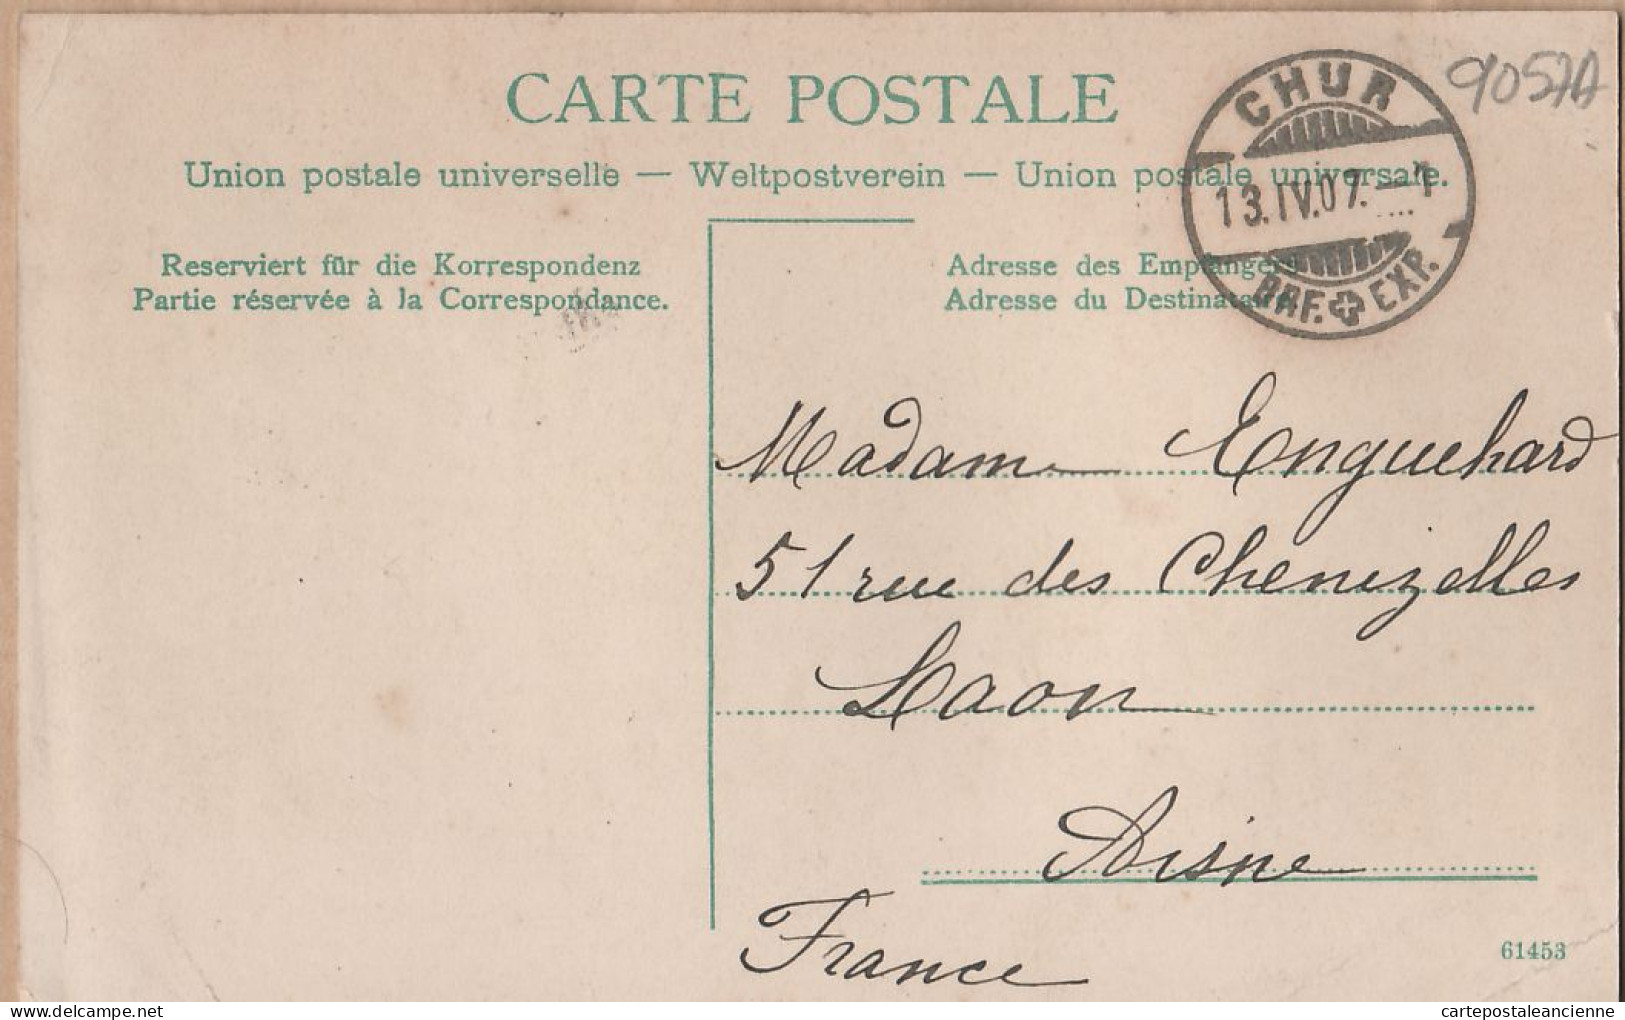 CARTE POSTALE
Union postale universelle — Weltpostverein — Union postale universale.
Reserviert für die Korrespondenz
Partie réservée à la Correspondance.
Adresse des Empfängers
Adresse du Destinataire
CHUR
13.IV.07.—1
BRF. EXP.
9057A
Madame Enguehard
51 rue des Chenizelles
Laon
Aisne
France
61453
cartepostaleancienne